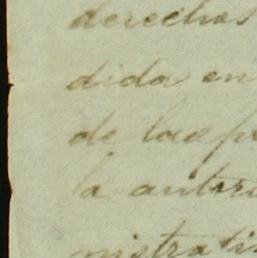 derechos
dida en
de las pr
la autori
nistrati